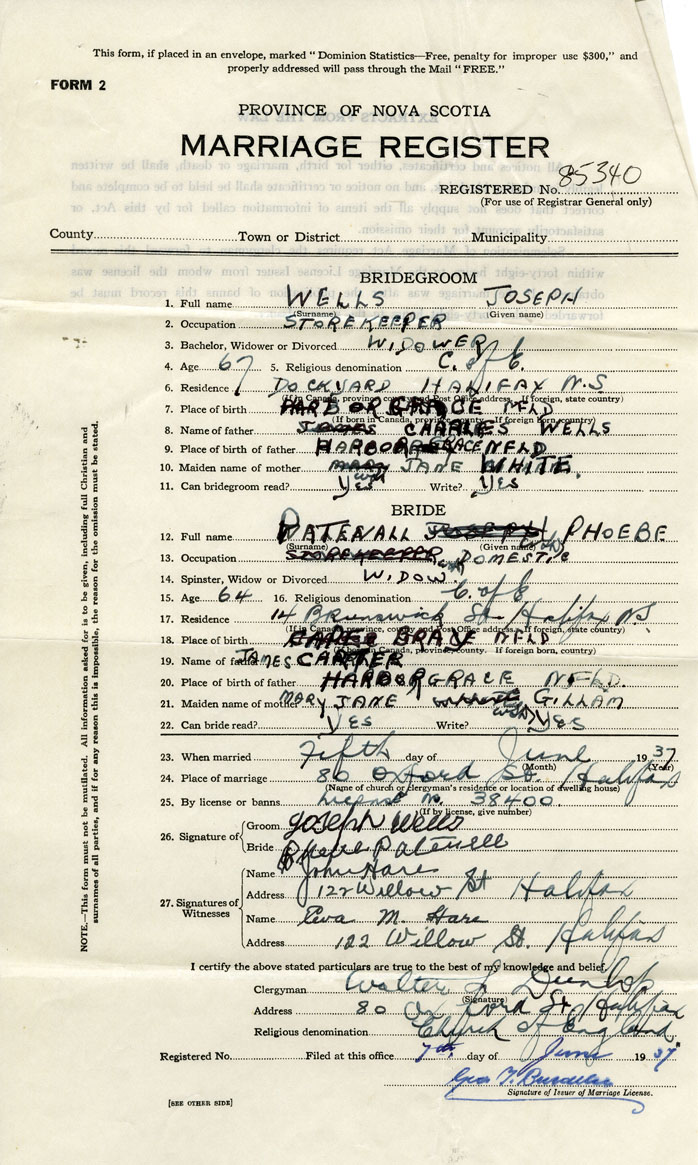 This form, if placed in an envelope, marked "Dominion Statistics—Free, penalty for improper use $300," and
properly addressed will pass through the Mail "FREE."
FORM 2
PROVINCE OF NOVA SCOTIA
MARRIAGE REGISTER
REGISTERED No. 85340
(For use of Registrar General only)
County Town or District Municipality
BRIDEGROOM
1. Full name WELLS JOSEPH
(Surname) (Given name)
2. Occupation STOREKEEPER
3. Bachelor, Widower or Divorced WIDOWER
4. Age 67 5. Religious denomination C. of E.
6. Residence DOCKYARD HALIFAX N.S
(If in Canada, province, county and Post Office address. If foreign, state country)
7. Place of birth HARBOR GRACE NFLD
(If born in Canada, province, county. If foreign born, country)
8. Name of father CHARLES WELLS
9. Place of birth of father HARBOR GRACE NFLD
10. Maiden name of mother JANE WHITE.
11. Can bridegroom read? Yes Write? Yes
BRIDE
12. Full name PHOEBE
(Surname) (Given name)
13. Occupation STOREKEEPER DOMESTIC
14. Spinster, Widow or Divorced WIDOW
15. Age 64 16. Religious denomination C. of E
17. Residence 14 Brunswick St. Halifax NS
(If in Canada, province, county and Post Office address. If foreign, state country)
18. Place of birth GRACE NFLD
(If born in Canada, province, county. If foreign born, country)
19. Name of father JAMES CARTER
20. Place of birth of father HARBOR GRACE NFLD.
21. Maiden name of mother MARY JANE GILLAM
22. Can bride read? YES Write? YES
23. When married Fifth day of June 1937
(Month) (Year)
24. Place of marriage 80 Oxford St. Halifax
(Name of church or clergyman's residence or location of dwelling house)
25. By license or banns License No. 38400
(If by license, give number)
26. Signature of Groom Joseph Wells
Bride Phoebe
27. Signatures of Witnesses Name John Hare
Address 122 Willow St Halifax
Name Eva M. Hare
Address 122 Willow St. Halifax
I certify the above stated particulars are true to the best of my knowledge and belief.
Clergyman Walter L Dunlop
(Signature)
Address 80 Oxford St. Halifax
Religious denomination Church of England
Registered No. Filed at this office 7th. day of June 1937
Signature of Issuer of Marriage License.
[SEE OTHER SIDE]
NOTE.—This form must not be mutilated. All information asked for is to be given, including full Christian and
surnames of all parties, and if for any reason this is impossible, the reason for the omission must be stated.